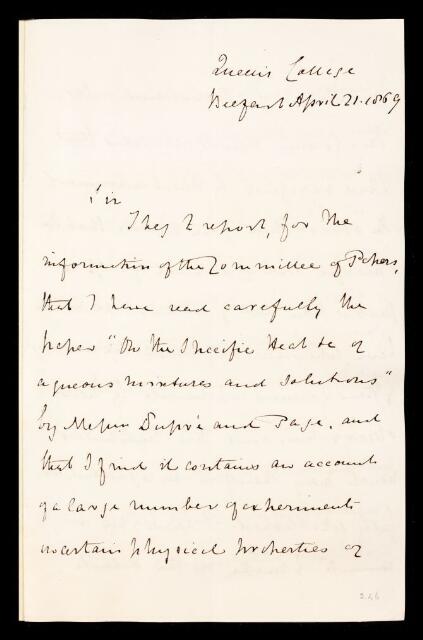 Queen's College
Belfast April 21. 1869
Sir
I beg to report, for the
information of the Committee of Papers,
that I have read carefully the
paper "On the Specific Heat &c of
aqueous mixtures and solutions"
by Messrs Dupré and Page, and
that I find it contains an account
of a large number of experiments
on certain physical properties of
246